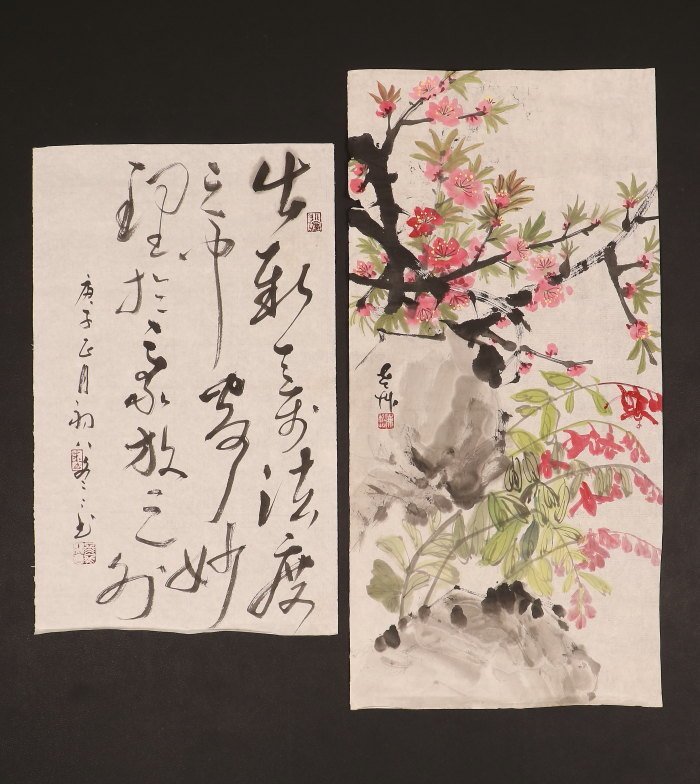 出新意於法度
之中寄妙
理於豪放之外
庚子正月初八